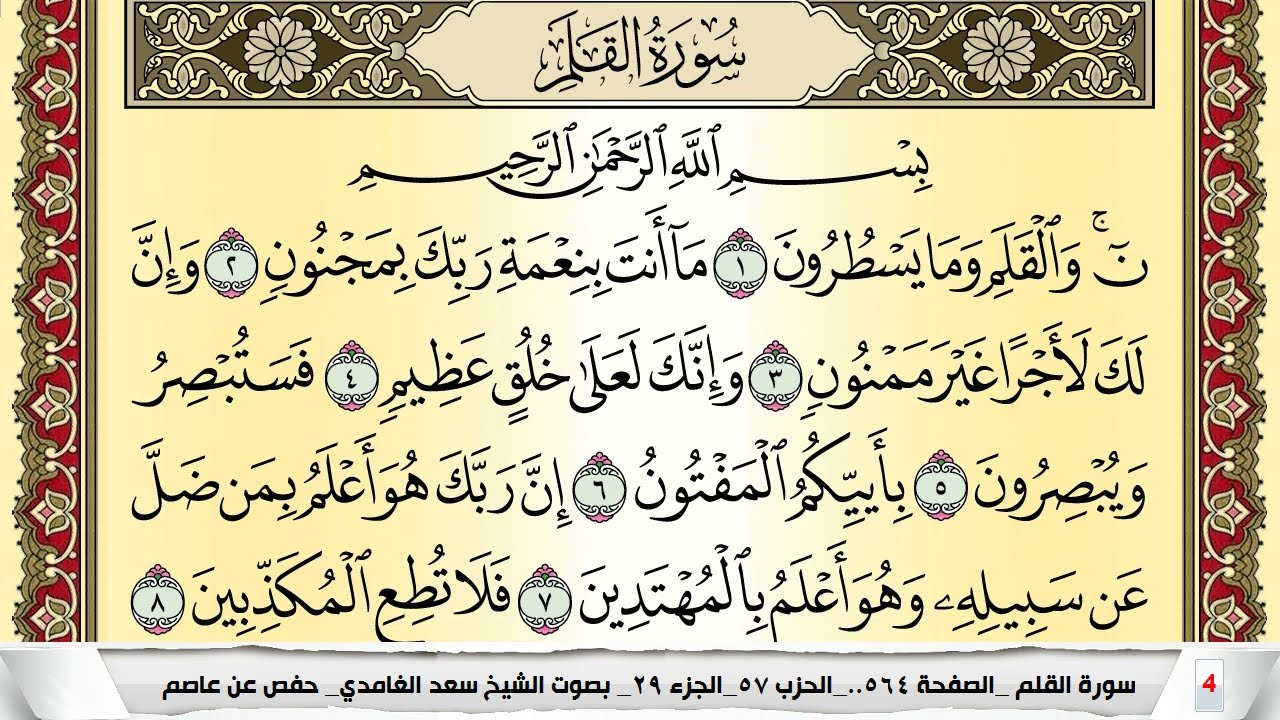 سُورَةُ القَلَمِ
بِسْمِ ٱللَّهِ ٱلرَّحْمَٰنِ ٱلرَّحِيمِ
نٓ ۚ وَٱلْقَلَمِ وَمَا يَسْطُرُونَ ١ مَآ أَنتَ بِنِعْمَةِ رَبِّكَ بِمَجْنُونٍ ٢ وَإِنَّ
لَكَ لَأَجْرًا غَيْرَ مَمْنُونٍ ٣ وَإِنَّكَ لَعَلَىٰ خُلُقٍ عَظِيمٍ ٤ فَسَتُبْصِرُ
وَيُبْصِرُونَ ٥ بِأَييِّكُمُ ٱلْمَفْتُونُ ٦ إِنَّ رَبَّكَ هُوَ أَعْلَمُ بِمَن ضَلَّ
عَن سَبِيلِهِۦ وَهُوَ أَعْلَمُ بِٱلْمُهْتَدِينَ ٧ فَلَا تُطِعِ ٱلْمُكَذِّبِينَ ٨
سورة القلم _الصفحة ٥٦٤.._الحزب ٥٧_الجزء ٢٩_ بصوت الشيخ سعد الغامدي_ حفص عن عاصم
4